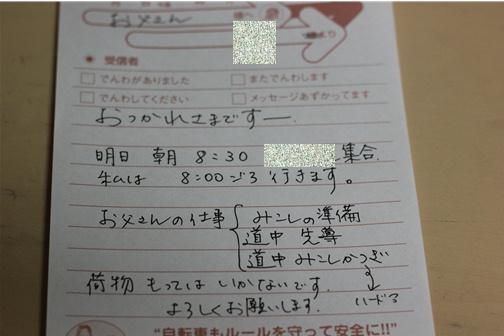 お父さん
より
受信者
でんわがありました
またでんわします
でんわしてください
メッセージあずかってます
おつかれさまですー
明日 朝 8:30 集合
私は 8:00ごろ 行きます。
お父さんの仕事 みこしの準備
道中 先導
道中 みこしかつぎ
荷物 もっては いかないです。
ハード?
よろしくお願いします。
"自転車もルールを守って安全に!!"